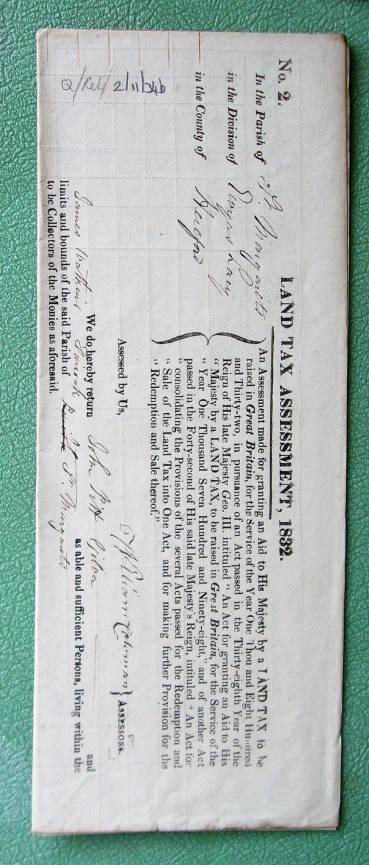 No. 2.
LAND TAX ASSESSMENT, 1832.
In the Parish of St. Margarets
in the Division of Ewyas Lacy
in the County of Hereford
An Assessment made for granting an Aid to His Majesty by a LAND TAX to be
raised in Great Britain, for the Service of the Year One Thou and Eight Hundred
and Thirty-two, in pursuance of an Act passed in the Thirty-eighth Year of the
Reign of His late Majesty Geo. III. intituled "An Act for granting an Aid to His
"Majesty by a LAND TAX, to be raised in Great Britain, for the Service of the
"Year One Thousand Seven Hundred and Ninety-eight," and of another Act
passed in the Forty-second of His said late Majesty's Reign, intituled "An Act for
"consolidating the Provisions of the several Acts passed for the Redemption and
"Sale of the Land Tax into One Act, and for making further Provision for the
"Redemption and Sale thereof."
Assessed by Us,
ASSESSORS.
We do hereby return John and
James as able and sufficient Persons, living within the
limits and bounds of the said Parish of St. Margarets
to be Collectors of the Monies as aforesaid.
Q/Rel/2/11/24b